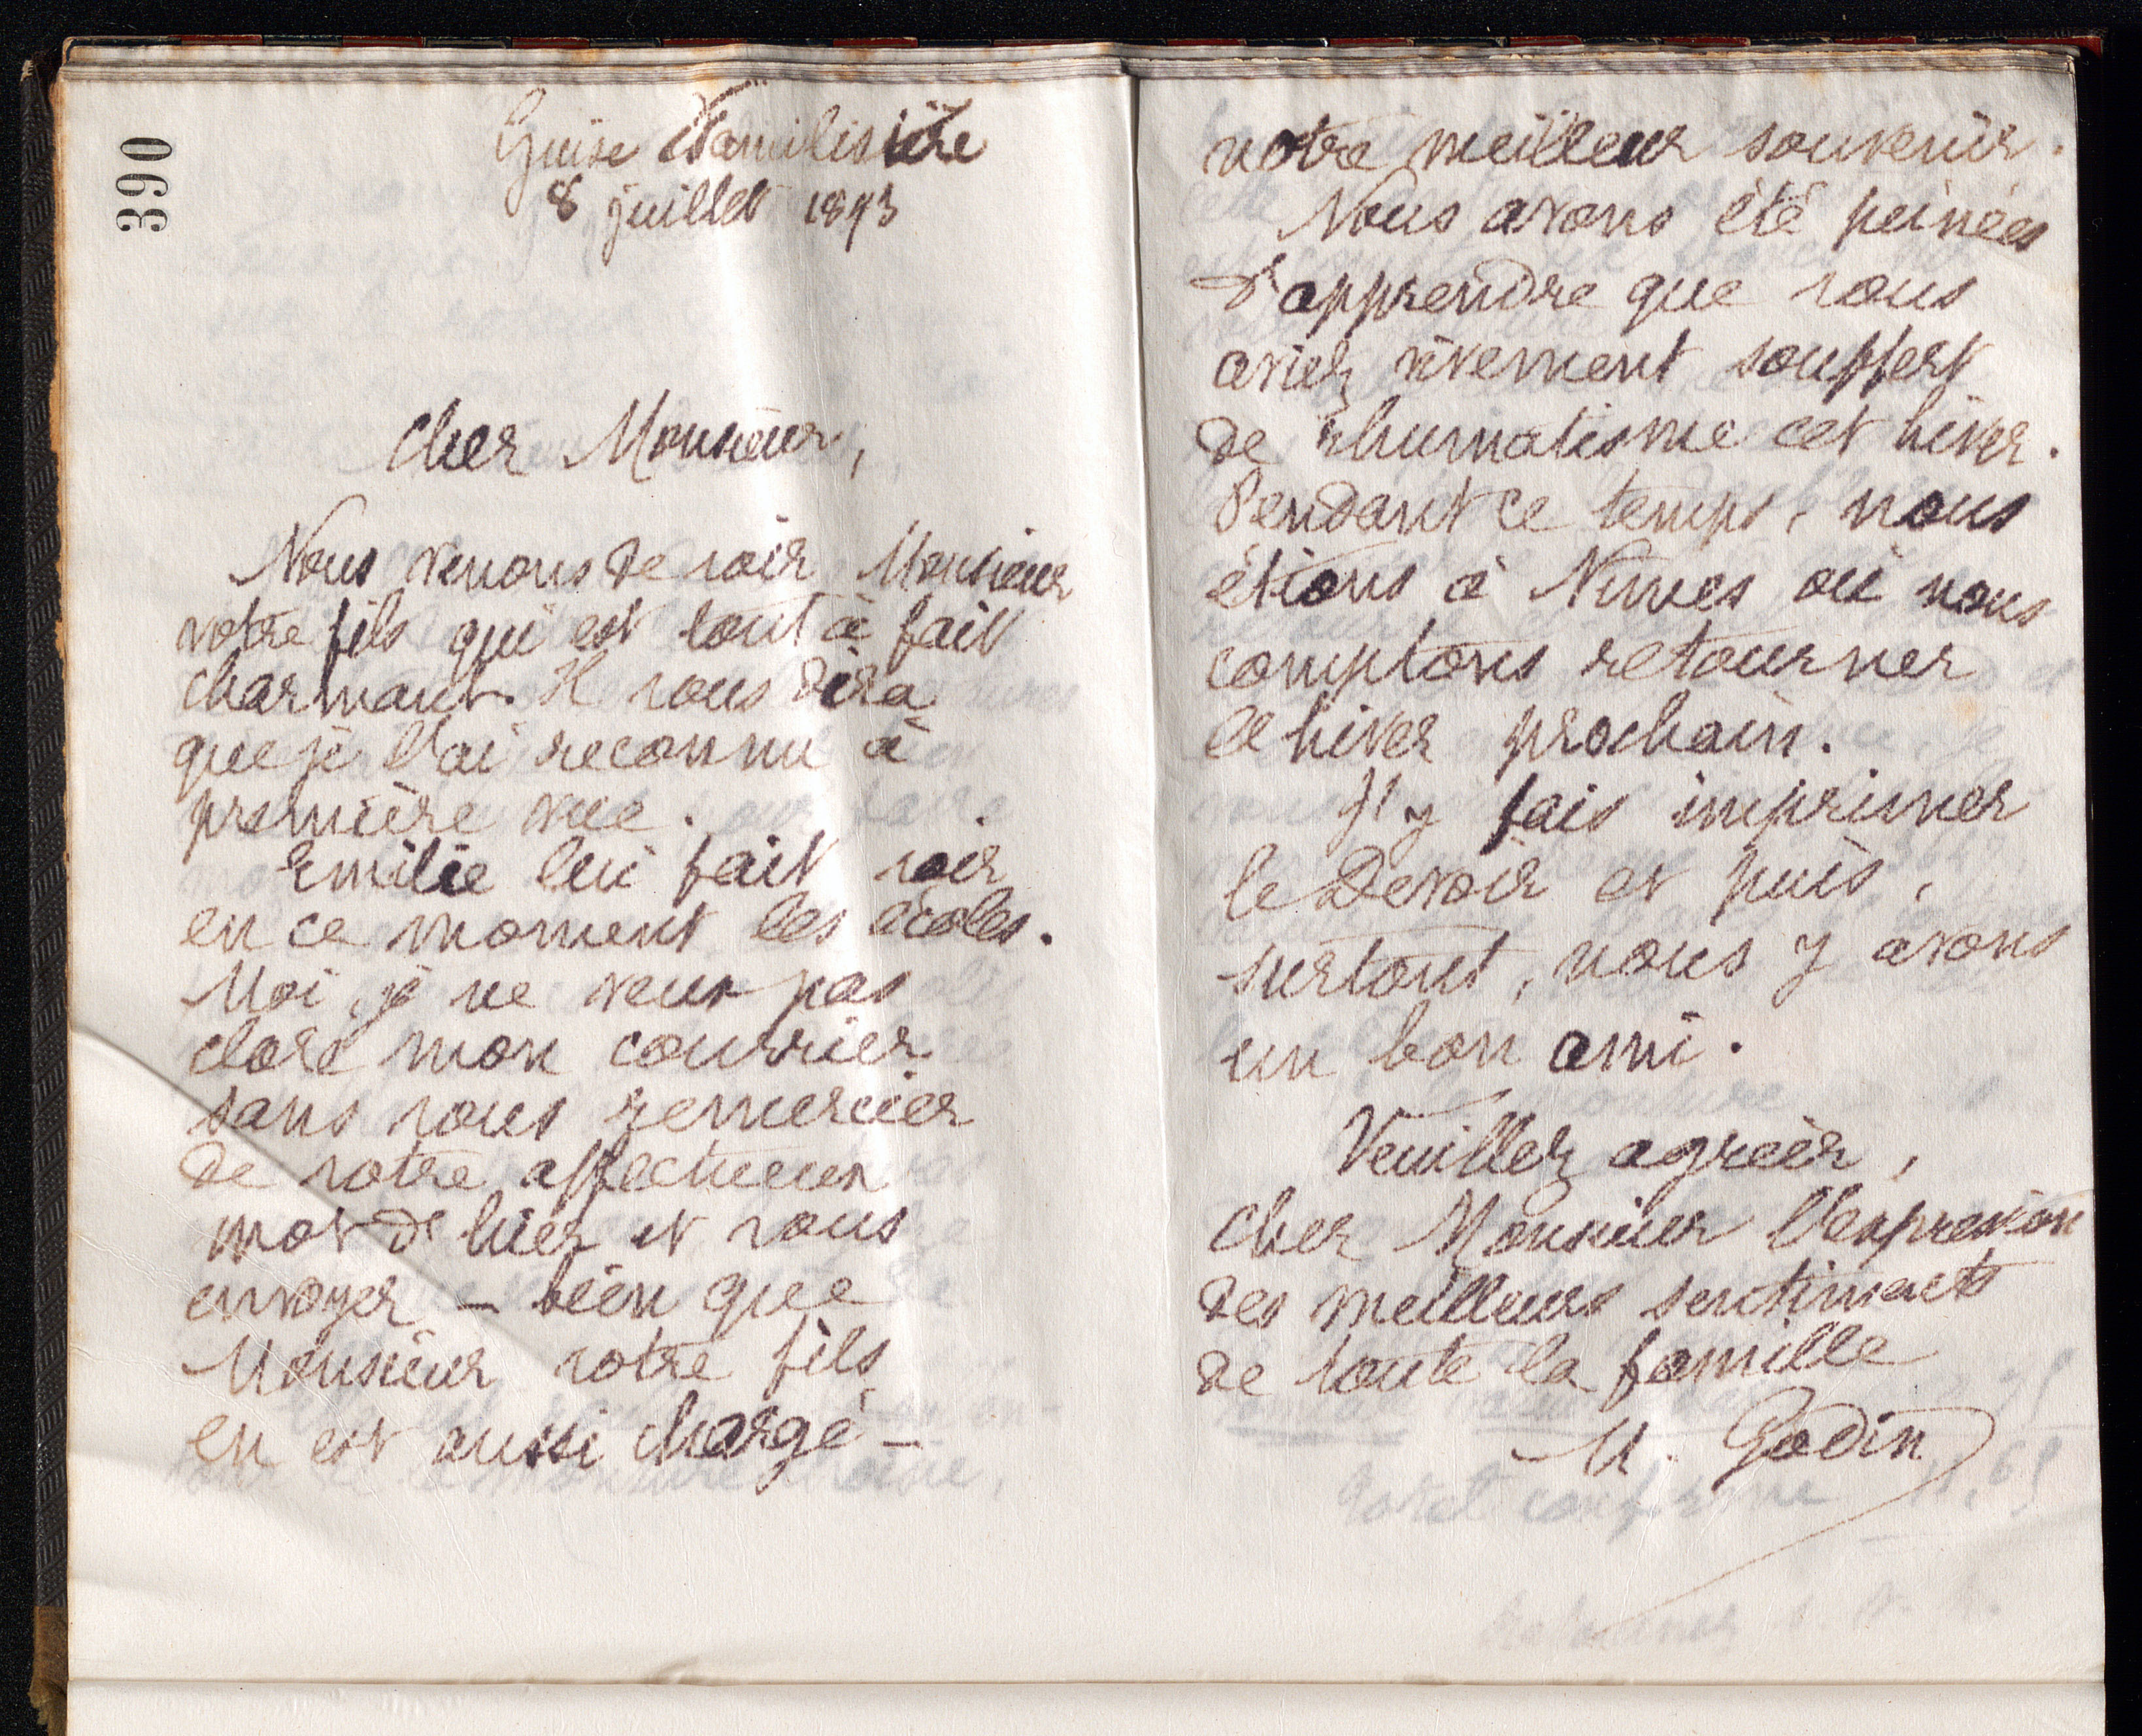 390
Guise Familistère
8 juillet 1893
Cher Monsieur,
Nous venons de voir Monsieur
votre fils qui est tout à fait
charmant. Il vous dira
que je l'ai reconnu à
première vue.
Emilie lui fait voir
en ce moment les écoles.
Moi, je ne veux pas
clore mon courrier
sans vous remercier
de votre affectueux
mot d'hier et vous
envoyer – bien que
Monsieur votre fils
en est aussi chargé –
notre meilleur souvenir.
Nous avons été peinées
d'apprendre que vous
aviez vivement souffert
de rhumatisme cet hiver.
Pendant ce temps, nous
étions à Nimes où nous
comptons retourner
l'hiver prochain.
J'y fais imprimer
le Devoir et puis,
surtout, nous y avons
un bon ami.
Veuillez agréer,
cher Monsieur l'expression
des meilleurs sentiments
de toute la famille
M. Godin